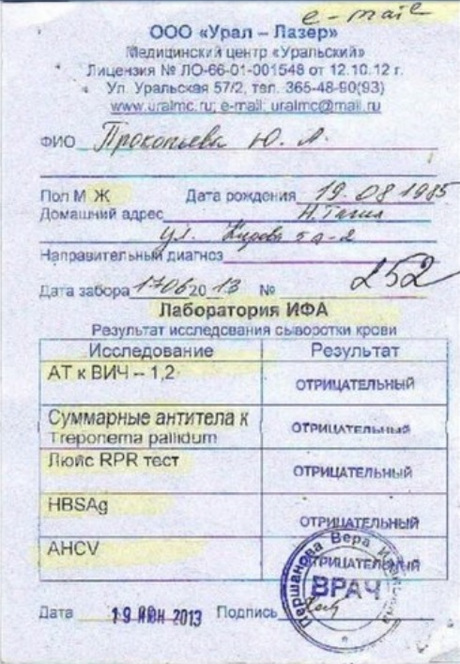 e-mail
ООО «Урал – Лазер»
Медицинский центр «Уральский»
Лицензия № ЛО-66-01-001548 от 12.10.12 г.
Ул. Уральская 57/2, тел. 365-48-90(93)
www.uralmc.ru; e-mail: uralmc@mail.ru
ФИО Прокопьева Ю. А.
Пол М Ж Дата рождения 19.08 1985
Домашний адрес Н. Тагил
ул. Кирова
Направительный диагноз
Дата забора 17062013 № 252
Лаборатория ИФА
Результат исследования сыворотки крови
Исследование Результат
АТ к ВИЧ – 1,2 ОТРИЦАТЕЛЬНЫЙ
Суммарные антитела к
Treponema pallidum ОТРИЦАТЕЛЬНЫЙ
Люйс RPR тест ОТРИЦАТЕЛЬНЫЙ
HBSAg ОТРИЦАТЕЛЬНЫЙ
AHCV ОТРИЦАТЕЛЬНЫЙ
Вера
ВРАЧ
Дата 19 ИЮН 2013 Подпись